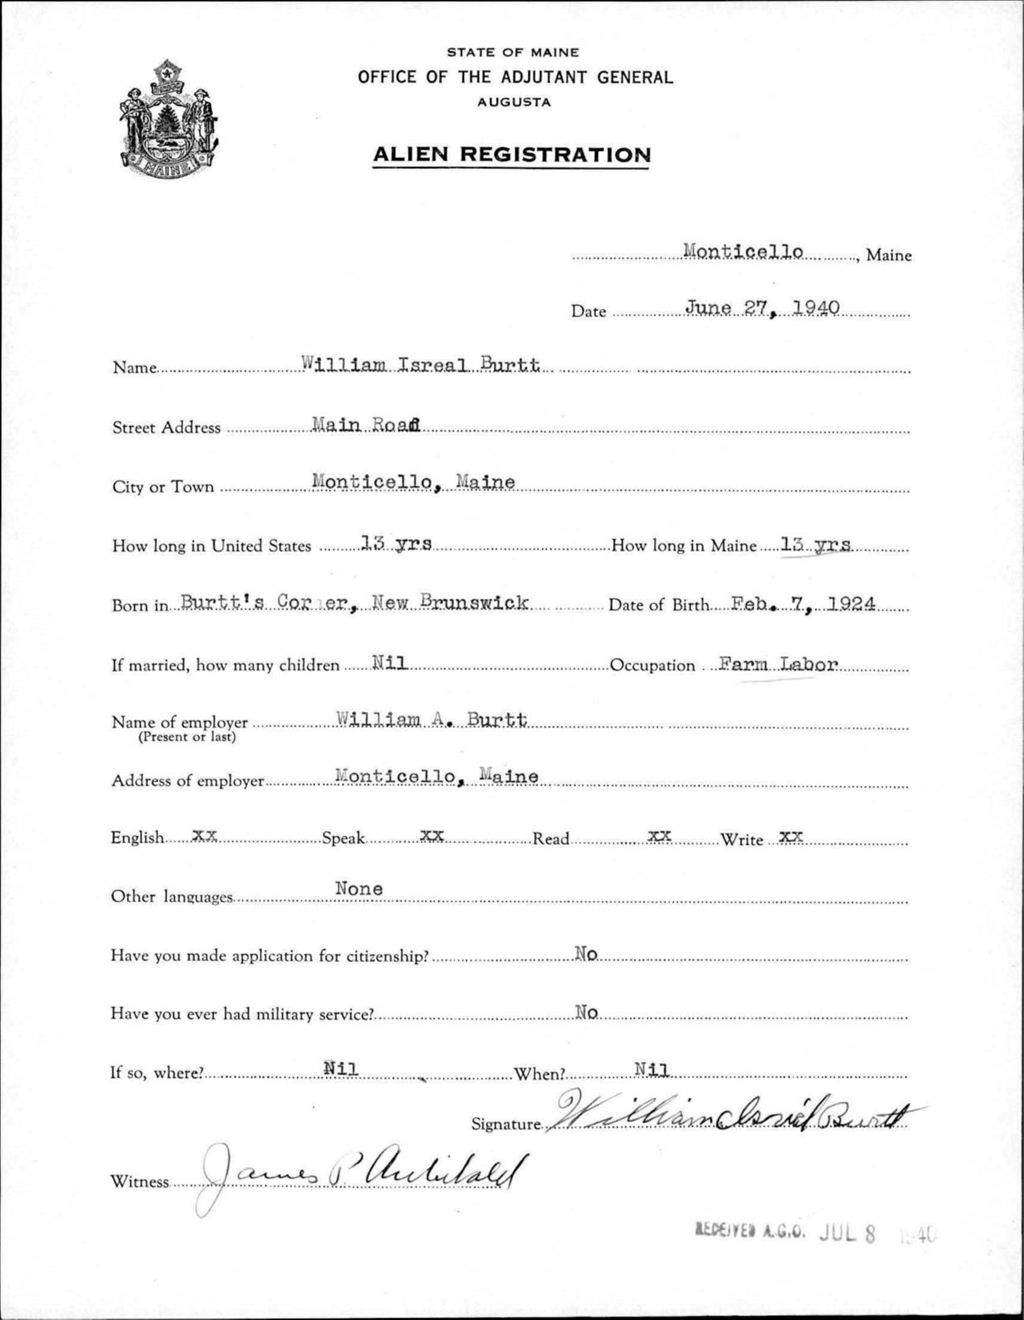 STATE OF MAINE
OFFICE OF THE ADJUTANT GENERAL
AUGUSTA
ALIEN REGISTRATION
MAINE
Monticello, Maine
Date June 27, 1940
Name William Isreal Burtt
Street Address Main Road
City or Town Monticello, Maine
How long in United States 13 yrs How long in Maine 13 yrs
Born in Burtt's Corner, New Brunswick Date of Birth Feb. 7, 1924
If married, how many children Nil Occupation Farm Labor
Name of employer William A. Burtt
(Present or last)
Address of employer Monticello, Maine
English xx Speak xx Read xx Write xx
Other languages None
Have you made application for citizenship? No
Have you ever had military service? No
If so, where? Nil When? Nil
Signature William Isreal Burtt
Witness James P. Archibald
RECEIVED A.G.O. JUL 8 1940